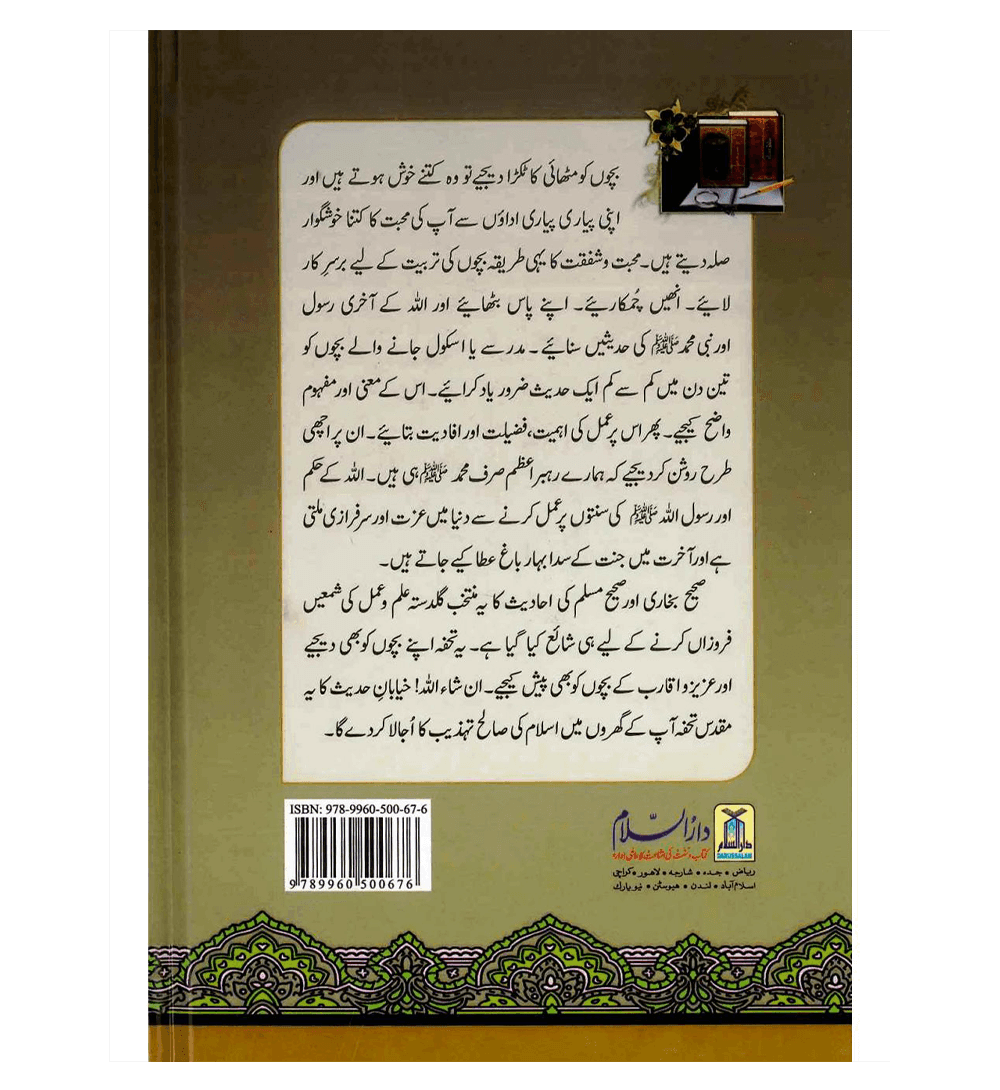 بچوں کو مٹھائی کا ٹکڑا دیجیے تو وہ کتنے خوش ہوتے ہیں اور
اپنی پیاری پیاری اداؤں سے آپ کی محبت کا کتنا خوشگوار
صلہ دیتے ہیں۔ محبت و شفقت کا یہی طریقہ بچوں کی تربیت کے لیے برسرِ کار
لائیے۔ انھیں چُمکاریئے۔ اپنے پاس بٹھائیے اور اللہ کے آخری رسول
اور نبی محمد ﷺ کی حدیثیں سنائیے۔ مدرسے یا اسکول جانے والے بچوں کو
تین دن میں کم سے کم ایک حدیث ضرور یاد کرائیے۔ اس کے معنی اور مفہوم
واضح کیجیے۔ پھر اس پر عمل کی اہمیت، فضیلت اور افادیت بتائیے۔ ان پر اچھی
طرح روشن کر دیجیے کہ ہمارے رہبر اعظم صرف محمد ﷺ ہی ہیں۔ اللہ کے حکم
اور رسول اللہ ﷺ کی سنتوں پر عمل کرنے سے دنیا میں عزت اور سرفرازی ملتی
ہے اور آخرت میں جنت کے سدا بہار باغ عطا کیے جاتے ہیں۔
صحیح بخاری اور صحیح مسلم کی احادیث کا یہ منتخب گلدستہ علم و عمل کی شمعیں
فروزاں کرنے کے لیے ہی شائع کیا گیا ہے۔ یہ تحفہ اپنے بچوں کو بھی دیجیے
اور عزیز و اقارب کے بچوں کو بھی پیش کیجیے۔ ان شاء اللہ! خیابانِ حدیث کا یہ
مقدس تحفہ آپ کے گھروں میں اسلام کی صالح تہذیب کا اُجالا کر دے گا۔
ISBN: 978-9960-500-67-6
9 789960 500676
دارالسلام
دارالسلام
DARUSSALAM
کتاب و سنت کی اشاعت کا عالمی ادارہ
ریاض • جدہ • شارجہ • لاہور • کراچی
اسلام آباد • لندن • ہیوسٹن • نیو یارک